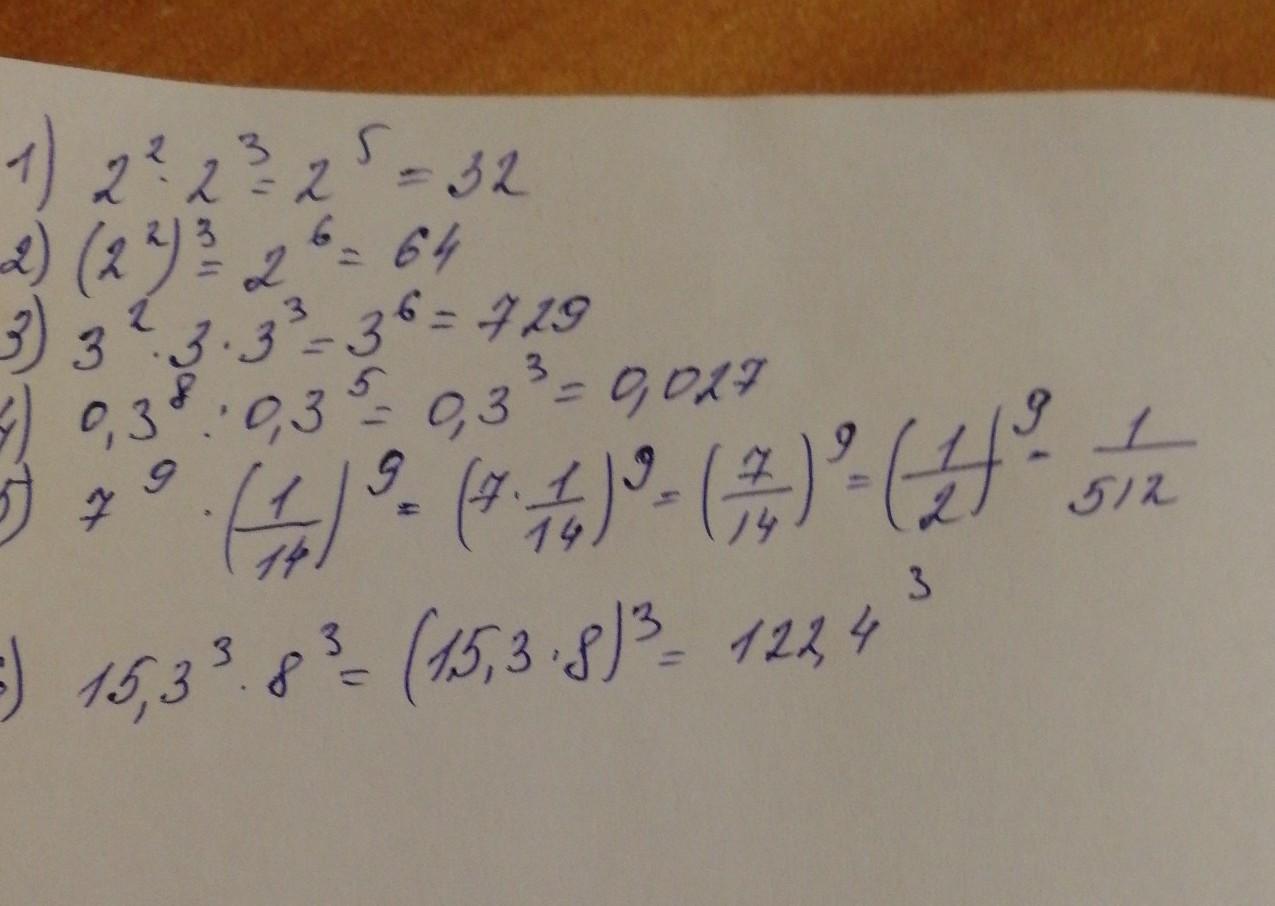 1) 2² · 2³ = 2⁵ = 32
2) (2²)³ = 2⁶ = 64
3) 3² · 3 · 3³ = 3⁶ = 729
4) 0,3⁸ : 0,3⁵ = 0,3³ = 0,027
5) 7⁹ · (1/14)⁹ = (7 · 1/14)⁹ = (7/14)⁹ = (1/2)⁹ - 1/512
) 15,3³ · 8³ = (15,3 · 8)³ = 122,4³